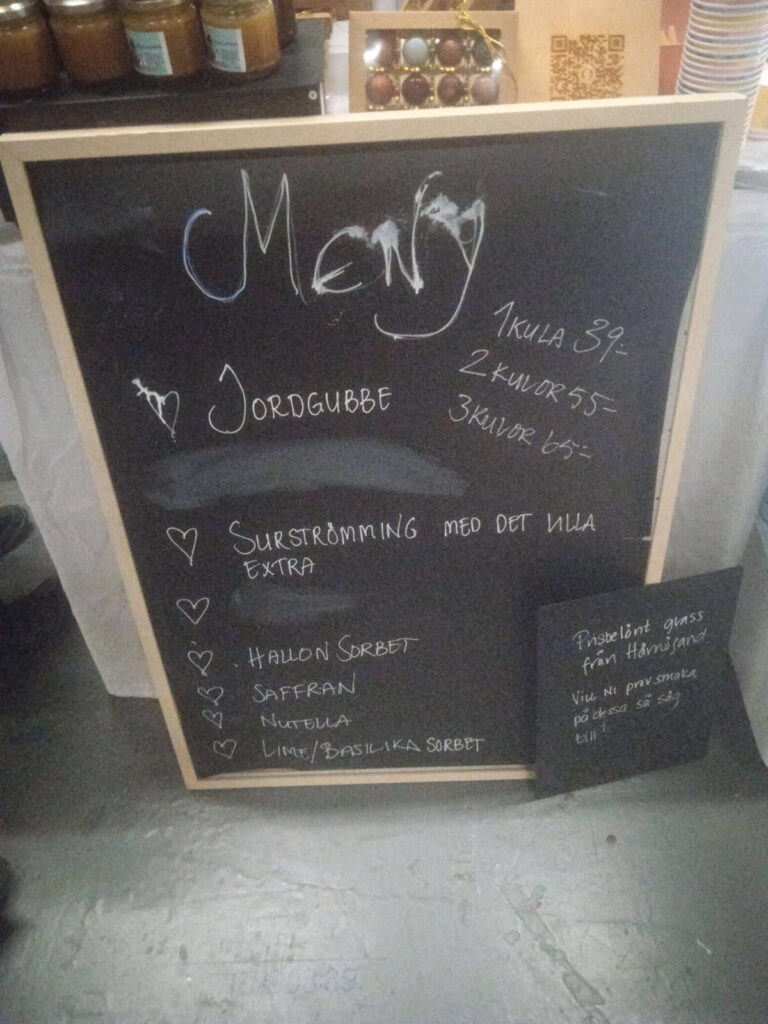 Meny
1 KULA 39:-
2 KULOR 55:-
3 KULOR 65:-
JORDGUBBE
SURSTRÖMMING MED DET LILLA
EXTRA
HALLON SORBET
SAFFRAN
NUTELLA
LIME/BASILIKA SORBET
Prisbelönt glass
från Härnösand
Vill NI provsmaka
på dessa så säg
till!